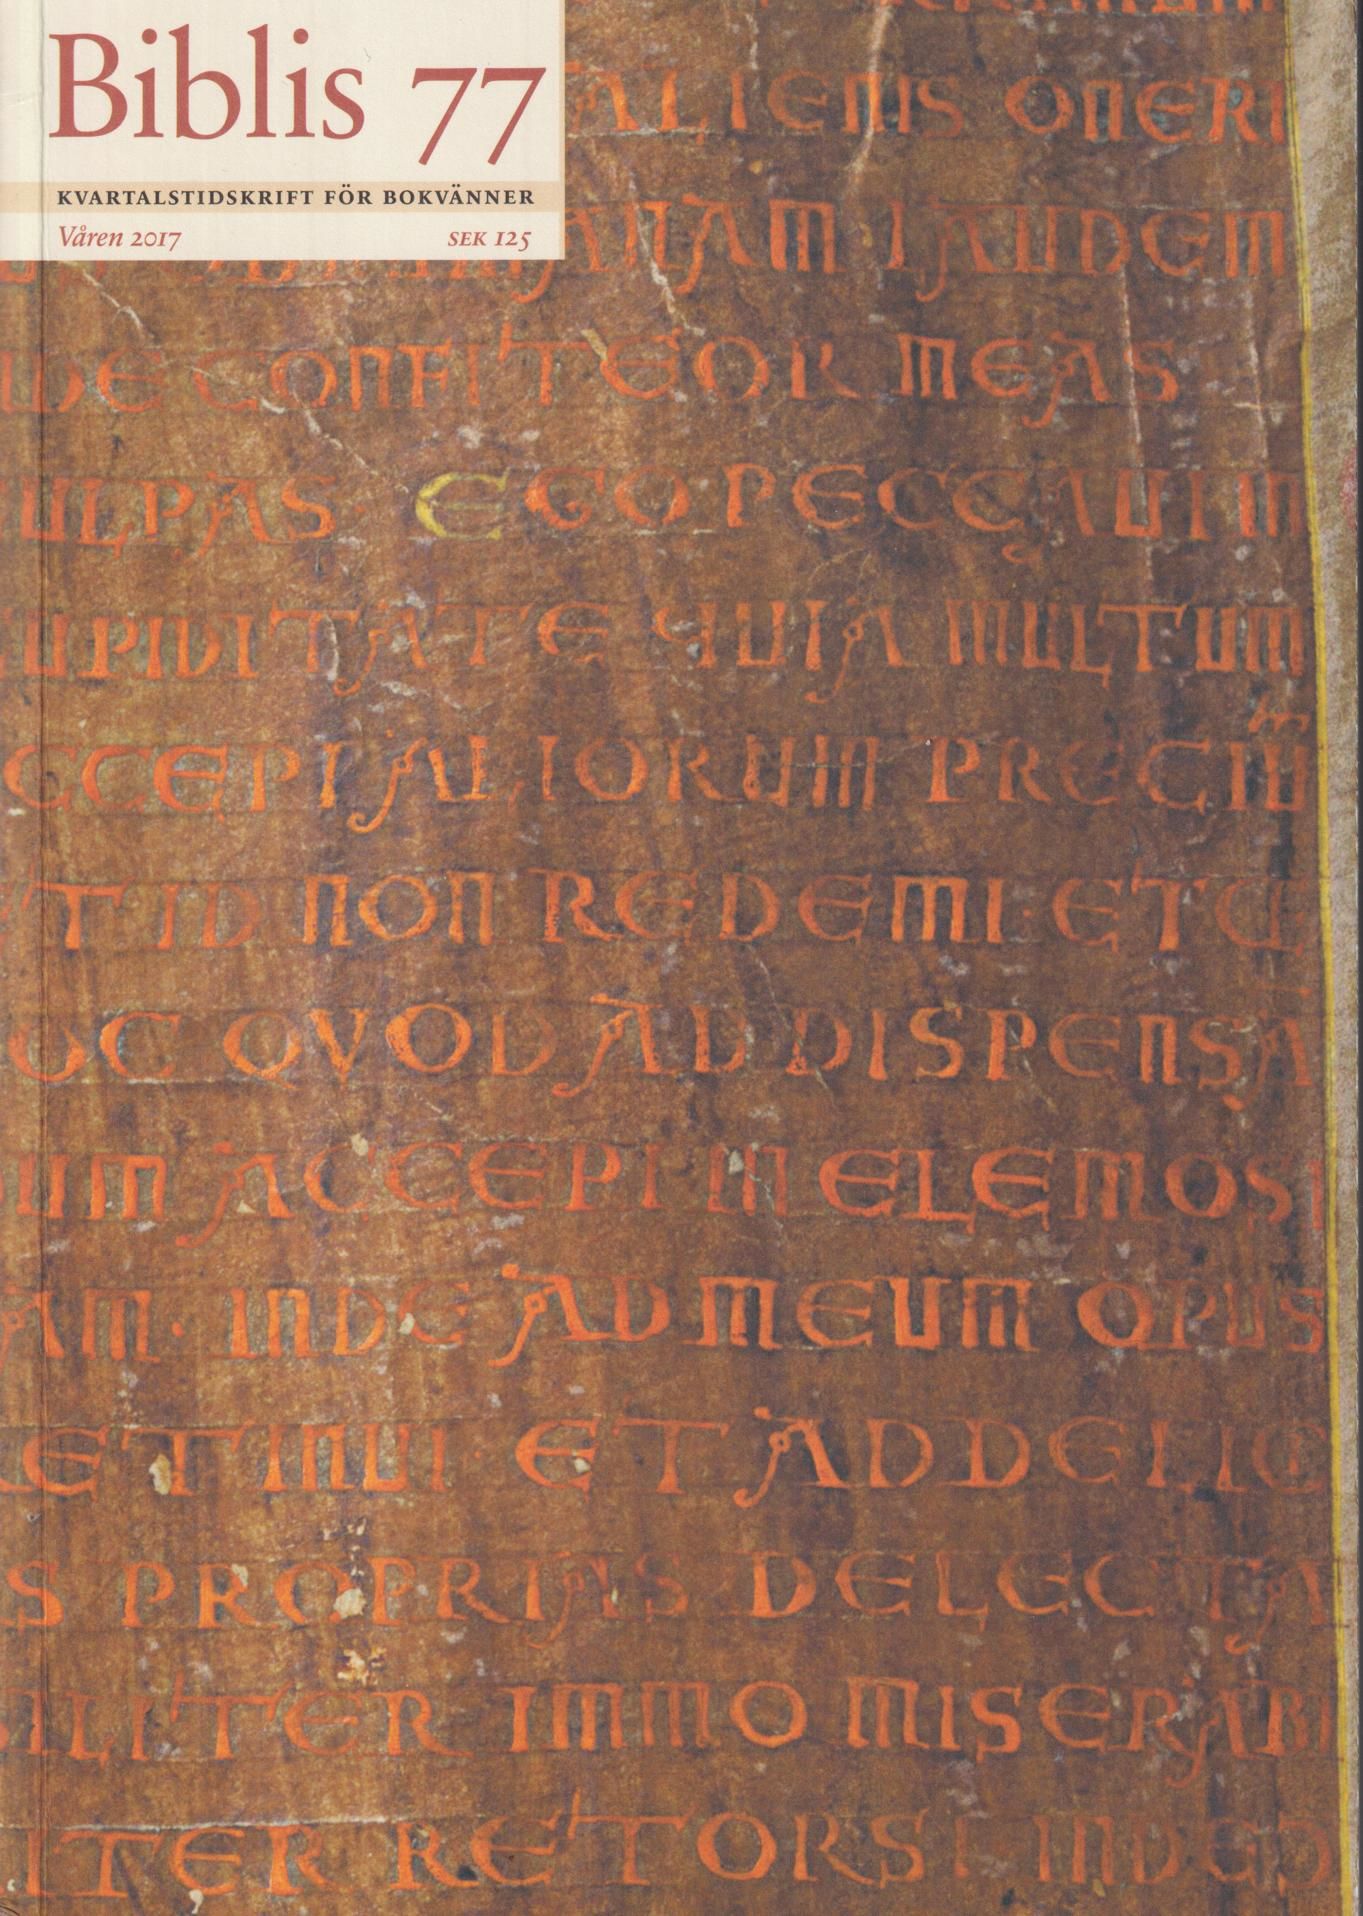 Biblis 77
KVARTALSTIDSKRIFT FÖR BOKVÄNNER
Våren 2017 SEK 125
ALIENIS ONERI
MAM LAUDEM
DE CONFITEOR MEAS
ULPAS EGO PECCAUI IN
UPIDITATE QUIA MULTUM
CCEPI ALIORUM PRECIU
m
T ID NON REDEMI· ET
OC QVOD AD DISPENSA
UM ACCEPI IN ELEMOSI
AM· INDE AD MEUM OPUS
ETINUI· ET AD DELIC
S PROPRIAS DELECTA
ILITER IMMO MISERABI
ITER RETORSI INDE